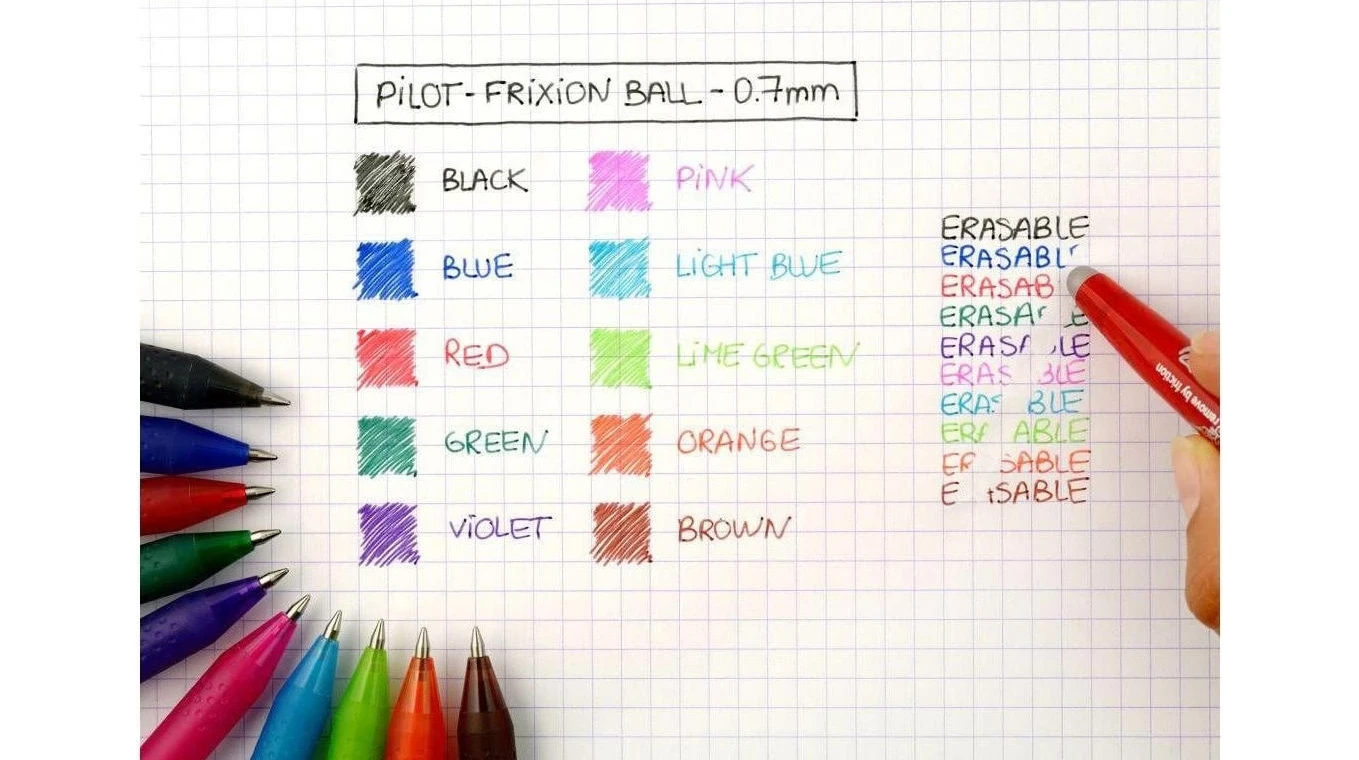 PiLOT-FRiXiON BALL-0.7mm
BLACK
BLUE
RED
GREEN
ViOLET
PiNK
LiGHT BLUE
LiME GREEN
ORANGE
BROWN
ERASABLE
ERASABL
ERASAB
ERASA E
ERAS LE
ERAS BLE
ERA BLE
ER ABLE
E SABLE
E SABLE
remove by friction